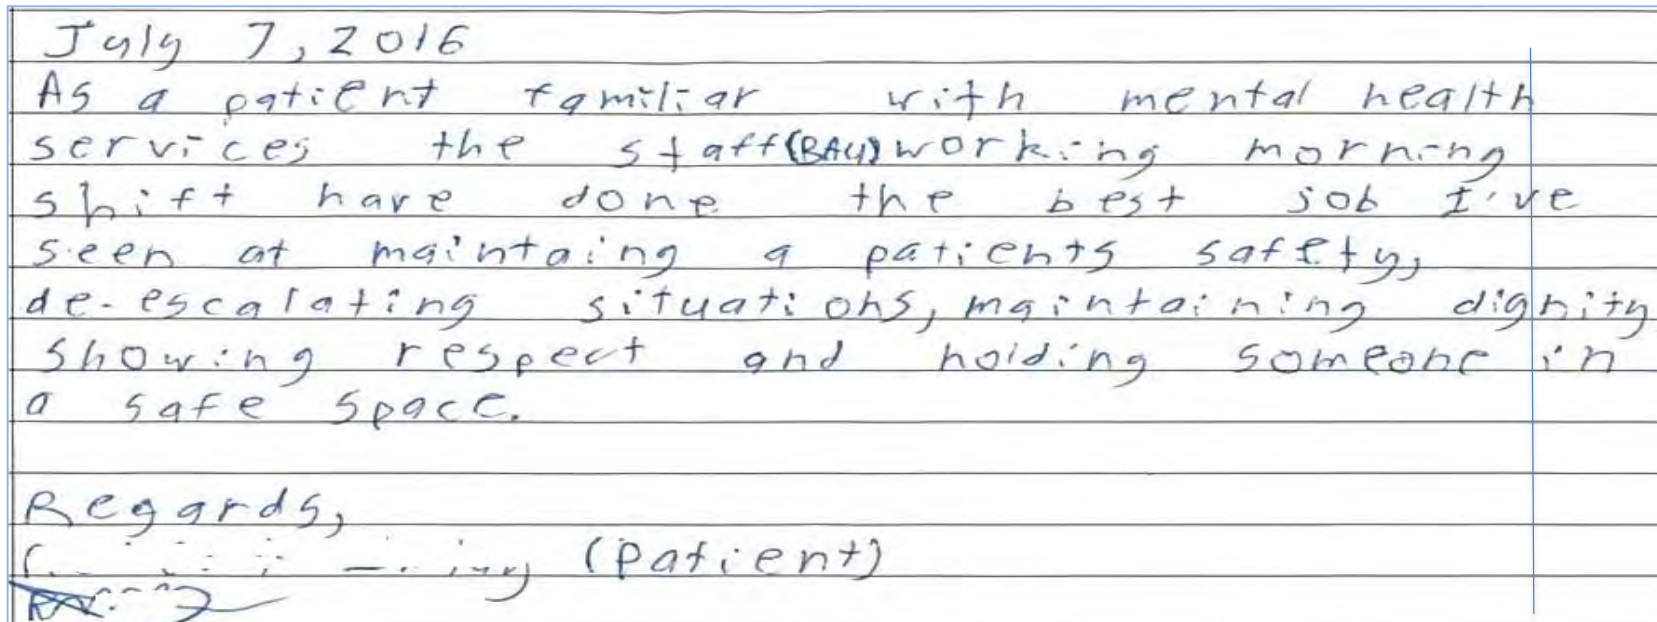 July 7, 2016
As a patient familiar with mental health
services the staff (BAU) working morning
shift have done the best job I've
seen at maintaing a patients safety,
de-escalating situations, maintaining dignity
showing respect and holding someone in
a safe space.
Regards,
(Patient)